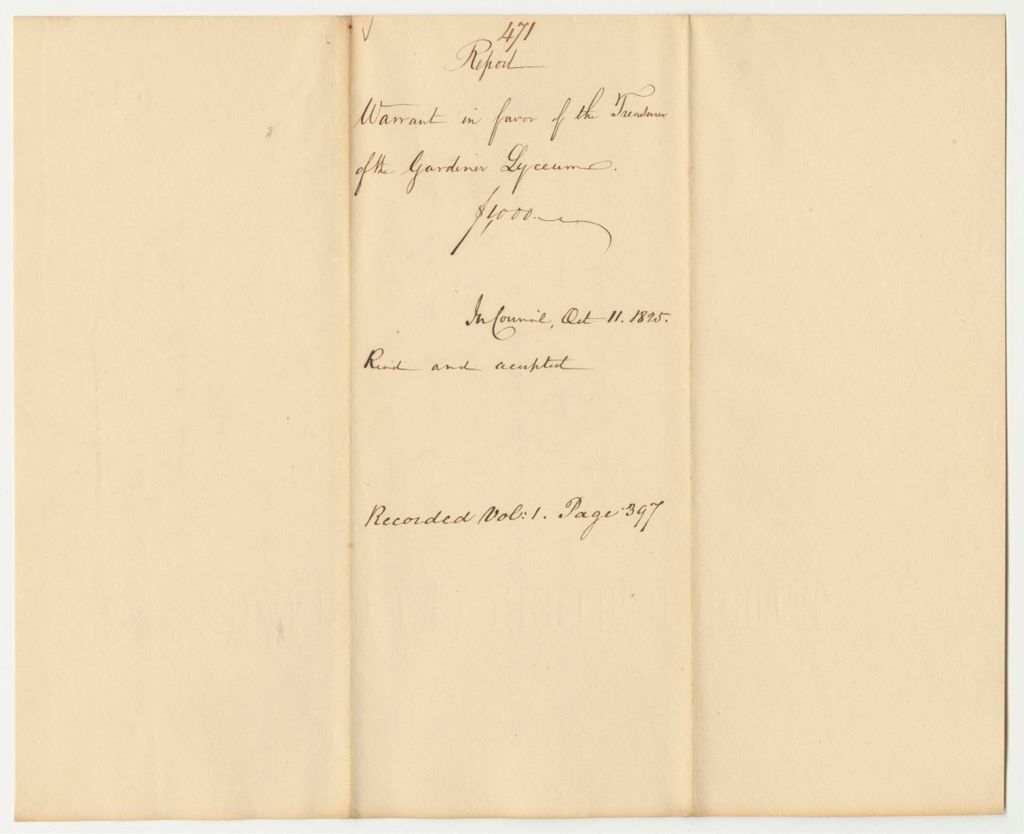 471
Report
Warrant in favor of the Treasurer
of the Gardiner Lyceum.
$1,000
In Council, Oct 11. 1825.
Read and accepted
Recorded Vol: 1. Page 397